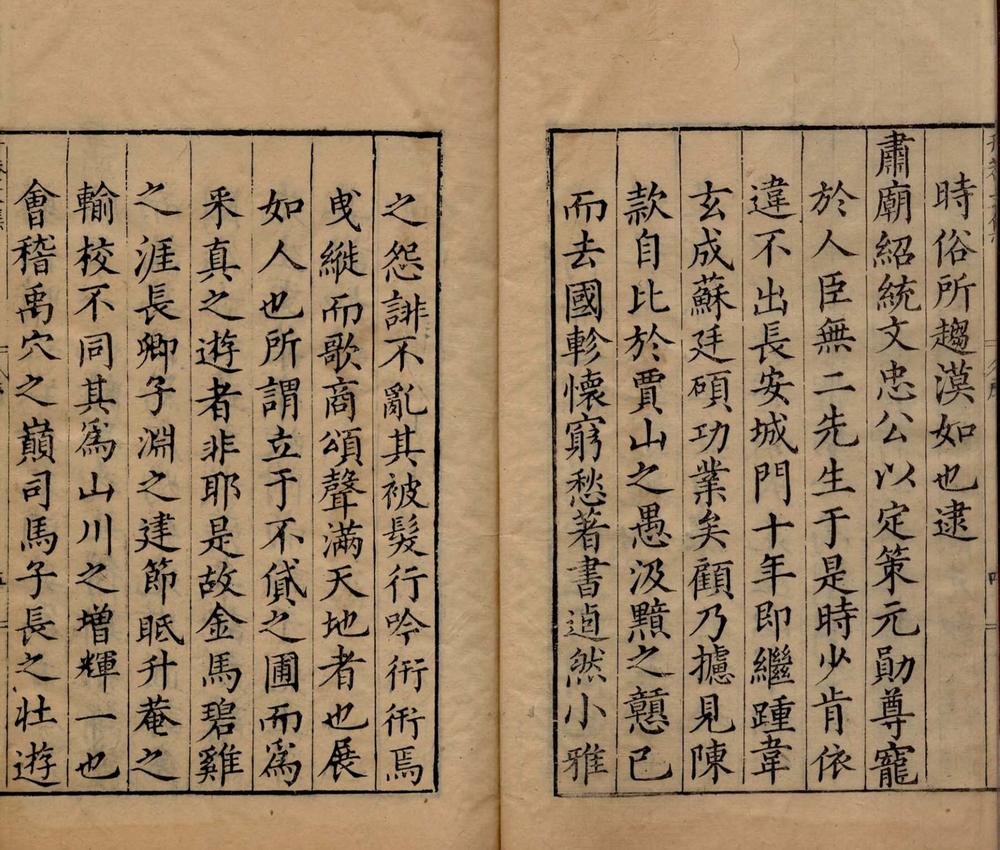 時俗所趨漠如也逮
肅廟紹統文忠公以定策元勛尊寵
於人臣無二先生于是時少肯依
違不出長安城門十年即繼踵韋
玄成蘇廷碩功業矣顧乃攄見陳
款自比於賈山之愚汲黯之戇已
而去國軫懷窮愁著書逌然小雅
之怨誹不亂其被髮行吟衎衎焉
曵縰而歌商頌聲滿天地者也展
如人也所謂立于不貸之圃而爲
采真之遊者非耶是故金馬碧雞
之涯長卿子淵之建節眂升菴之
輸校不同其爲山川之增輝一也
會稽禹穴之巔司馬子長之壯遊